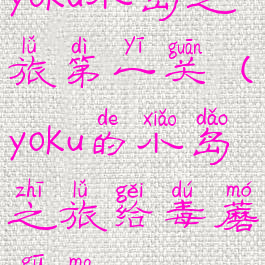 yoku 岛之
lǚ dì yī guān
旅第一关（
de xiǎo dǎo
yoku的小岛
zhī lǚ gěi dú mó
之旅给毒蘑